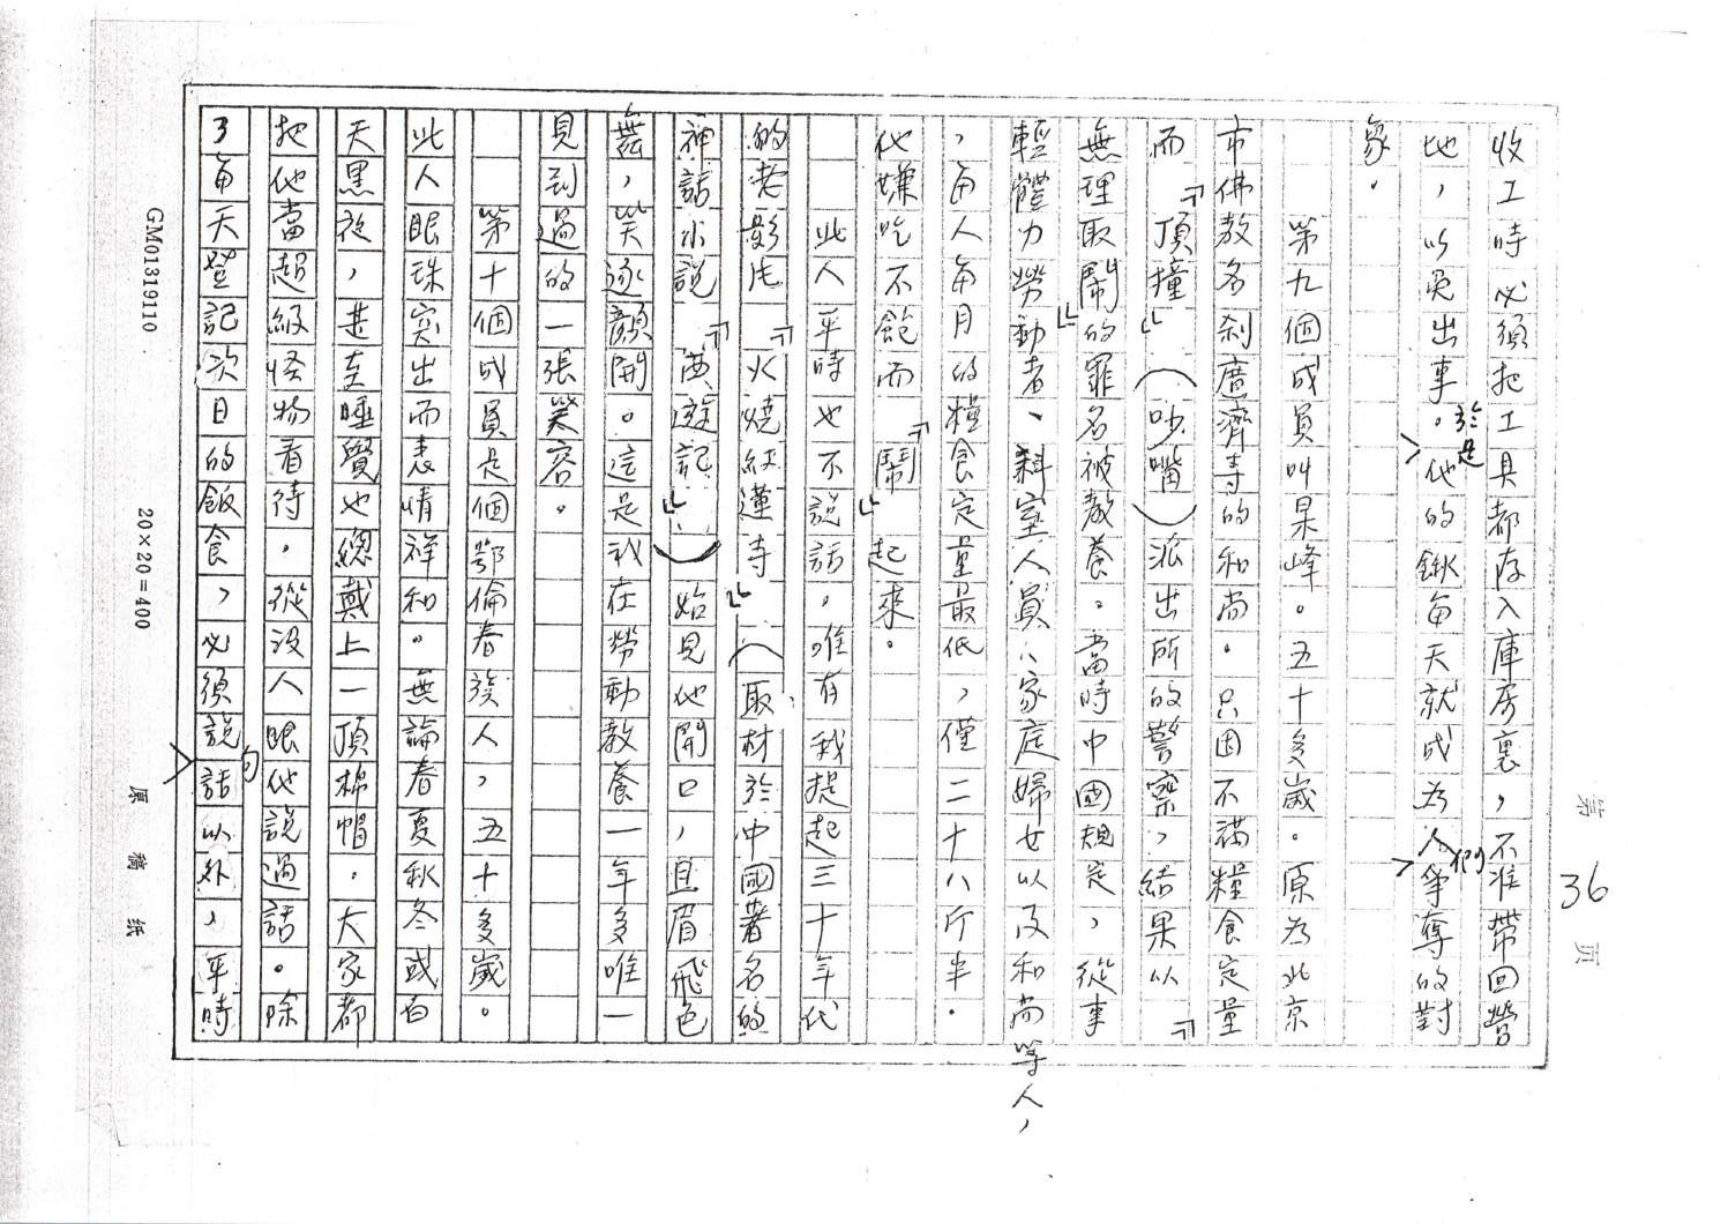 第 36 页
收工時必須把工具都存入庫房裏，不准帶回營
地，以免出事。於是他的鍬每天就成为人們争奪的对
象。
第九個成員叫杲峰。五十多歲。原为北京
市佛教名刹廣濟寺的和尚。只因不滿糧食定量
而『頂撞』（吵嘴）派出所的警察，結果以『
無理取鬧』的罪名被教養。當時中國規定，從事
輕體力勞動者、科室人員、家庭婦女以及和尚等人，
，每人每月的糧食定量最低，僅二十八斤半。
他嫌吃不飽而『鬧』起來。
此人平時也不說話。唯有我提起三十年代
的老影片『火燒紅蓮寺』（取材於中國著名的
神話小說『西遊記』）始見他開口，且眉飛色
舞，笑逐顏開。這是我在勞動教養一年多唯一
見到過的一張笑容。
第十個成員是個鄂倫春族人，五十多歲。
此人眼珠突出而表情祥和。無論春夏秋冬或白
天黑夜，甚至睡覺也總戴上一頂棉帽。大家都
把他當超級怪物看待。從没人跟他說過話。除
了每天登記次日的飯食，必須說句話以外，平時
GM01319110 20×20=400 原稿紙